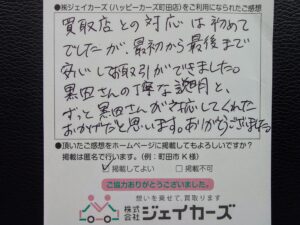 ●㈱ジェイカーズ(ハッピーカーズ町田店)をご利用になられたご感想
買取店との対応は初めて
でしたが、最初から最後まで
安心して取引ができました。
黒田さんの丁寧な説明と、
ずっと黒田さんが対応してくれた
おかげだと思います。ありがとうございました。
●頂いたご感想をホームページに掲載してもよろしいですか？
掲載は匿名で行います。(例：町田市K様)
掲載してよい　□掲載不可
ご協力ありがとうございました。
想いを乗せて、買取ります
株式会社ジェイカーズ